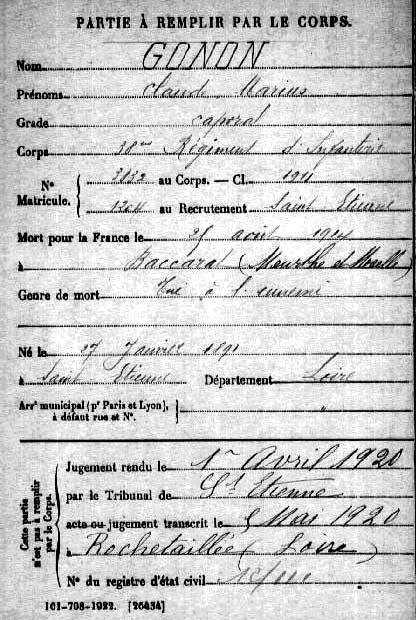 PARTIE À REMPLIR PAR LE CORPS.
Nom GONON
Prénoms Claude Marius
Grade caporal
Corps 38me Régiment d'Infanterie
N° Matricule. { 3832 au Corps. — Cl. 1911
1304 au Recrutement Saint Etienne
Mort pour la France le 25 août 1914
à Baccarat (Meurthe et Moselle)
Genre de mort Tué à l'ennemi
Né le 27 Janvier 1891
à Saint Etienne Département Loire
Arrt municipal (pr Paris et Lyon), à défaut rue et N°. } "
Cette partie n'est pas à remplir par le Corps.
Jugement rendu le 1er Avril 1920
par le Tribunal de St Etienne
acte ou jugement transcrit le 5 Mai 1920
à Rochetaillée (Loire)
N° du registre d'état civil
161-708-1922. [26434]